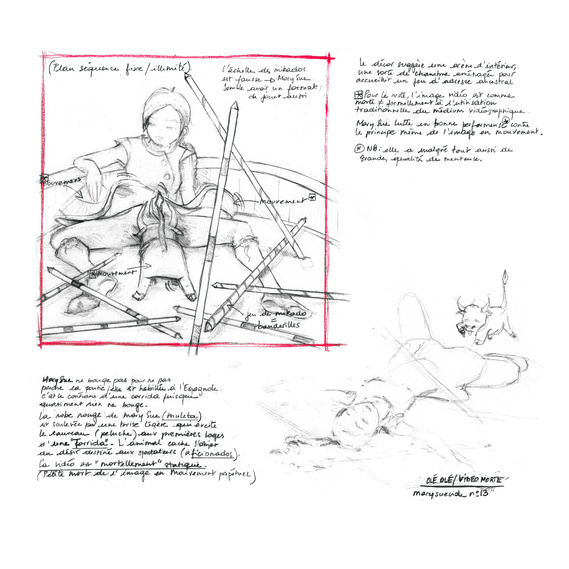 (Plan séquence fixe/illimité)
l'échelle des mikados
est fausse → Mary Sue
semble avoir un format
de jouet aussi
mouvement
mouvement
mouvement
jeu de mikado
=
banderilles
le décor suggère une arène d'intérieur,
une sorte de chambre aménagée pour
accueillir un jeu d'adresse ancestral
Pour le reste, l'image vidéo est comme
morte ≠ formellement à l'utilisation
traditionnelle du médium vidéographique.
Mary Sue lutte en bonne performeuse contre
le principe même de l'image en mouvement.
NB: elle a malgré tout aussi de
grandes qualités de menteuse.
Mary Sue ne bouge pas pour ne pas
perdre la partie/elle est habillée à l'Espagnole.
c'est le contraire d'une corrida puisque
quasiment rien ne bouge.
La robe rouge de Mary Sue (muleta)
est soulevée par une brise légère qui excite
le taureau (peluche) aux premières loges
d'une "corrida". L'animal cache l'objet
du désir destiné aux spectateurs (aficionados).
La vidéo est "mortellement" statique.
(Petite mort de l'image en mouvement perpétuel)
OLÉ OLÉ/VIDÉO MORTE
marysuecide n°13